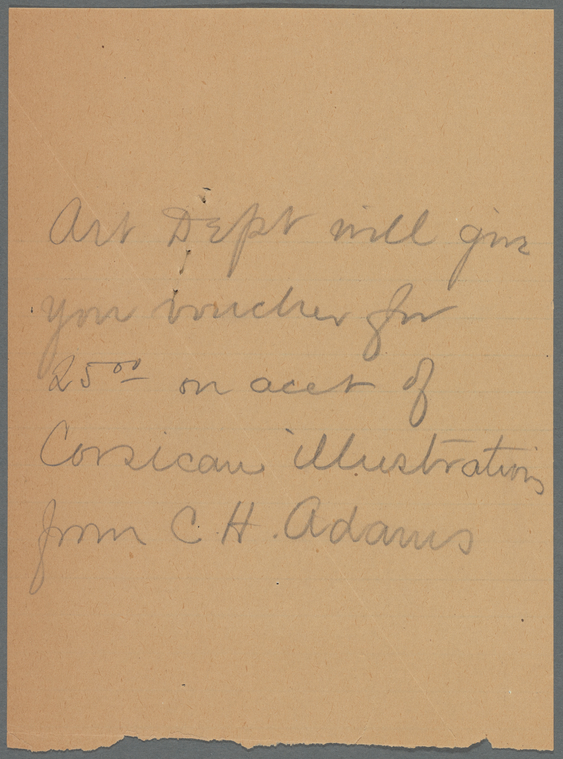 Art Dept will give
you voucher for
25⁰⁰ on acct of
Corsican illustrations
from C. H. Adams